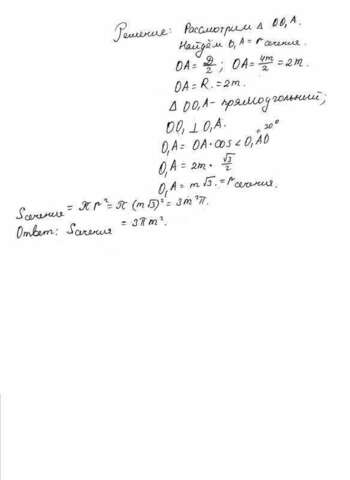 Решение: Рассмотрим Δ OO₁A.
Найдём O₁A = r сечения.
OA = D/2; OA = 4m/2 = 2m.
OA = R = 2m.
Δ OO₁A - прямоугольный;
OO₁ ⊥ O₁A.
O₁A = OA · cos < O₁AO = 30°
O₁A = 2m · √3/2
O₁A = m√3 = r сечения.
Sсечение = πr² = π(m√3)² = 3m²π.
Ответ: Sсечения = 3πm².